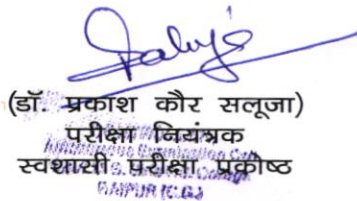 (डॉ. प्रकाश कौर सलूजा)
परीक्षा नियंत्रक
स्वशासी परीक्षा प्रकोष्ठ
RAIPUR (C.G.)